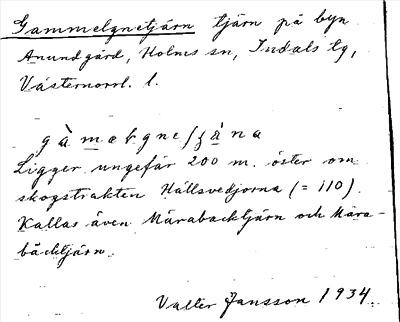 Gammelgnetjärn tjärn på byn
Anundgård, Holms sn, Indals tg,
Västernorrl. l.
Ligger ungefär 200 m. öster om
skogstrakten Hällsvedjorna (= 110).
Kallas även Märabacktjärn och Mära-
bäcktjärn.
Valter Jansson 1934.